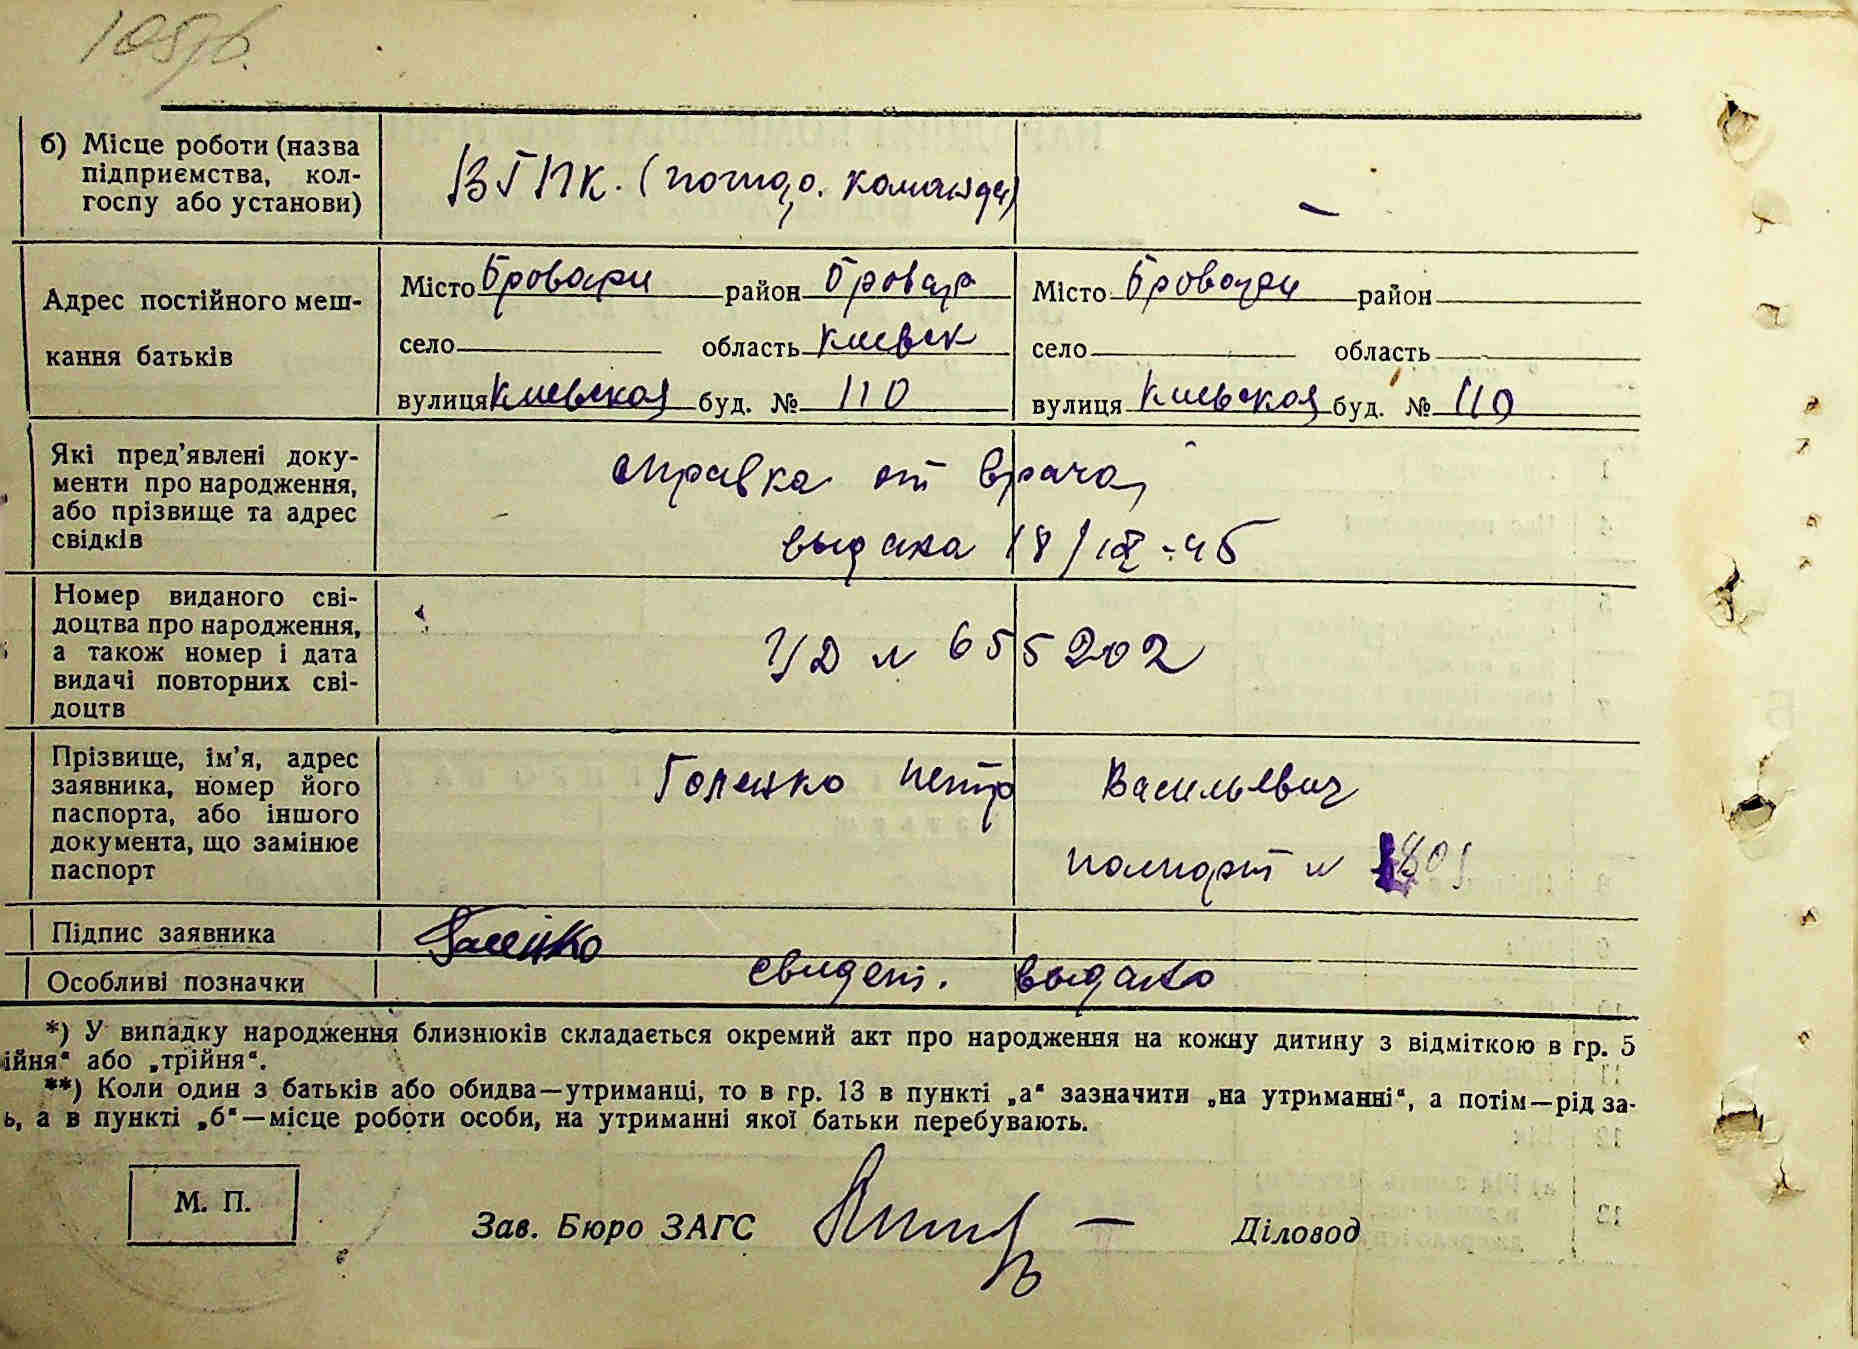 б) Місце роботи (назва
підприємства, кол-
госпу або установи)
ВГПК. (пожар. команда)
–
Адрес постійного меш-
кання батьків
Місто Бровари район Бровар
село область Киевск
вулиця Киевская буд. № 110
Місто Бровари район
село область
вулиця Киевская буд. № 110
Які пред'явлені доку-
менти про народження,
або прізвище та адрес
свідків
справка от врача
выдана 18/IX-45
Номер виданого сві-
доцтва про народження,
а також номер і дата
видачі повторних сві-
доцтв
УД № 655202
Прізвище, ім'я, адрес
заявника, номер його
паспорта, або іншого
документа, що замінює
паспорт
Голенко Петр Васильевич
паспорт №
Підпис заявника
Голенко
Особливі позначки
свидет. выдано
*) У випадку народження близнюків складається окремий акт про народження на кожну дитину з відміткою в гр. 5
ійня“ або „трійня“.
**) Коли один з батьків або обидва—утриманці, то в гр. 13 в пункті „а“ зазначити „на утриманні“, а потім—рід за-
ь, а в пункті „б“—місце роботи особи, на утриманні якої батьки перебувають.
М. П.
Зав. Бюро ЗАГС
Діловод